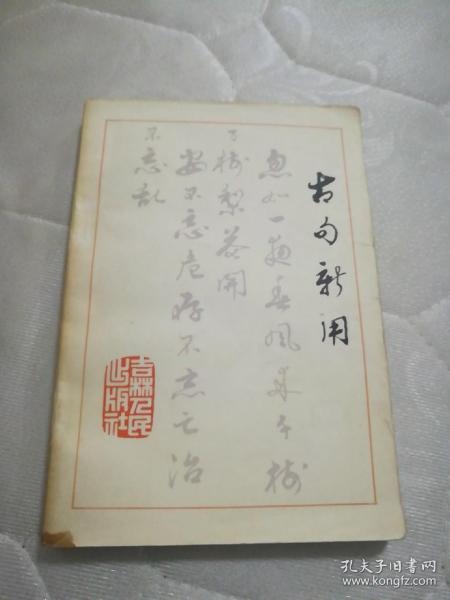 古句新用
忽如一夜春风来千树
万树梨花開
安不忘危存不忘亡治
不忘乱
吉林人民
出版社
孔夫子旧书网
www.kongfz.com